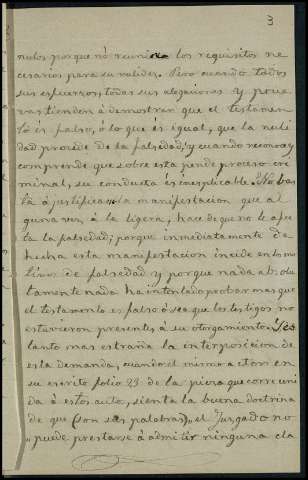 3
nulos porque nó reunia los requisitos ne
cesarios para su validez. Pero cuando todos
sus esfuerzos, todas sus alegaciones y prue
vas tienden á demostrar que el testamen
tó es falso, ó lo que és igual, que la nuli
dad procede de la falsedad; y cuando reconoce y
comprende que sobre esta pende proceso cri
minal, su conducta és inesplicable. No bas
ta á justificarla la manifestacion que al
guna vez á la ligera, hace de que no le afec
ta la falsedad; porque inmediatamente de
hecha esta manifestacion incide en los mo
tivos de falsedad y porque nada absolu
tamente nada ha intentado probar mas que
el testamento es falso ó sea que los testigos no
estuvieron presentes á su otorgamiento. Y es
tanto mas estraña la interposicion de
esta demanda, cuando el mismo actor en
su escrito folio 23 de la pieza que corre uni
da á estos autos, sienta la buena doctrina
de que (son sus palabras) "el Juzgado no
"puede prestarse á admitir ninguna cla